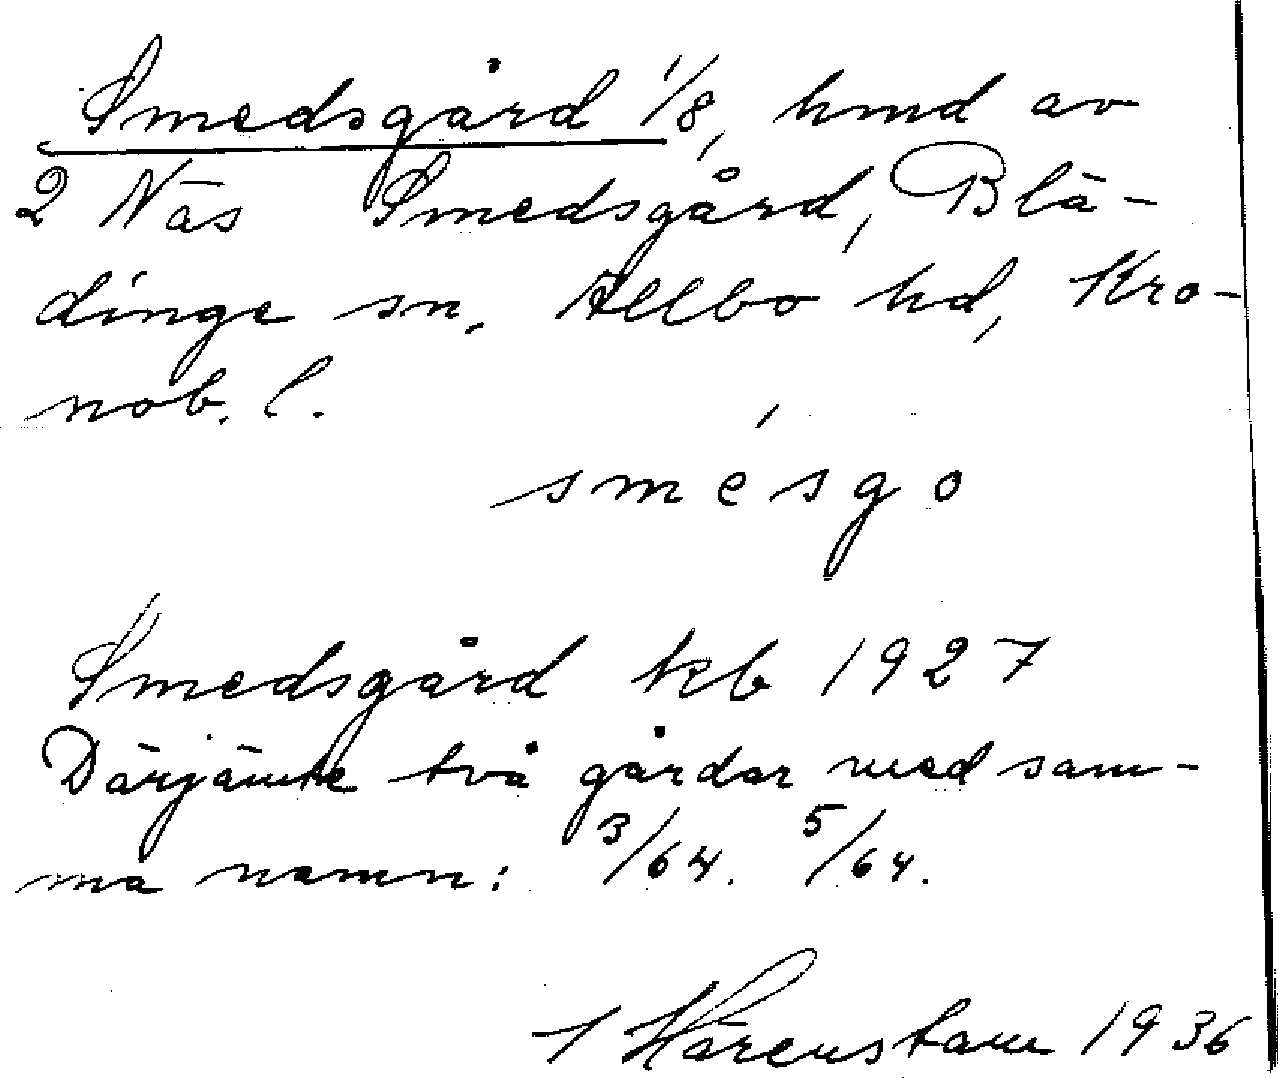 Smedsgård 1/8, hmd av
2 Näs Smedsgård, Blä-
dinge sn, Allbo hd, Kro-
nob. l.
smésgo
Smedsgård kb 1927
Därjämte två gårdar med sam-
ma namn: 3/64. 5/64.
Härenstam 1936